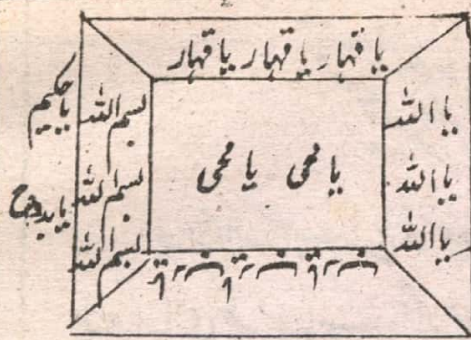 یا قہار یا قہار یا قہار
یا اللہ
یا اللہ
یا اللہ
یا محی یا محی
بسم اللہ
بسم اللہ
بسم اللہ
یا حکیم
یا بدوح